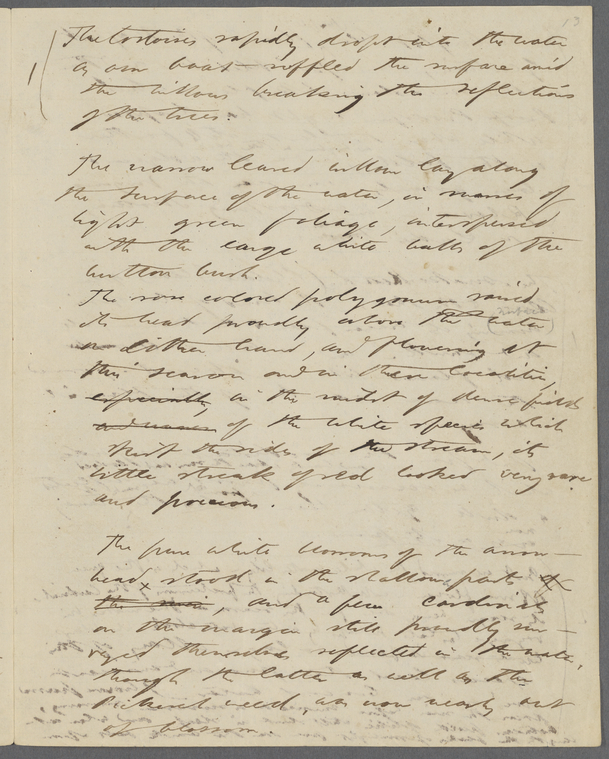 13
The tortoises rapidly dropt into the water
as our boat ruffled the surface amid
the willows breaking the reflections
of the trees.
The narrow leaved willow lay along
the surface of the water, in masses of
light green foliage, interspersed
with the large white balls of the
button bush.
The rose colored polygonum raised
its head proudly above the water
on either hand, and flowering at
this season and in these localities,
especially in the midst of dense fields
of the white species which
skirt the sides of the stream, its
little streak of red looked very rare
and precious.
The pure white blossoms of the arrow–
head stood in the shallow parts of
the , and a few cardinals
on the margin still proudly sur–
veyed themselves reflected in the water,
though the latter as well as the
Pickerel weed, was now nearly out
of blossom.